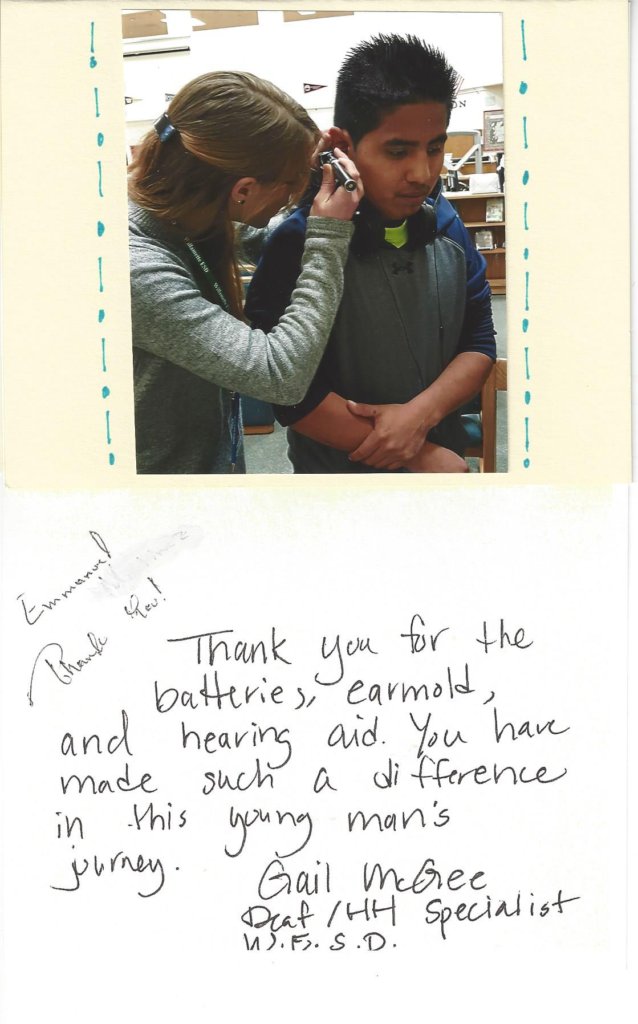 Willamette ESD
Emmanuel
Thank You!
Thank you for the
batteries, earmold,
and hearing aid. You have
made such a difference
in this young man's
journey.
Gail McGee
Deaf/HH Specialist
W.E.S.D.